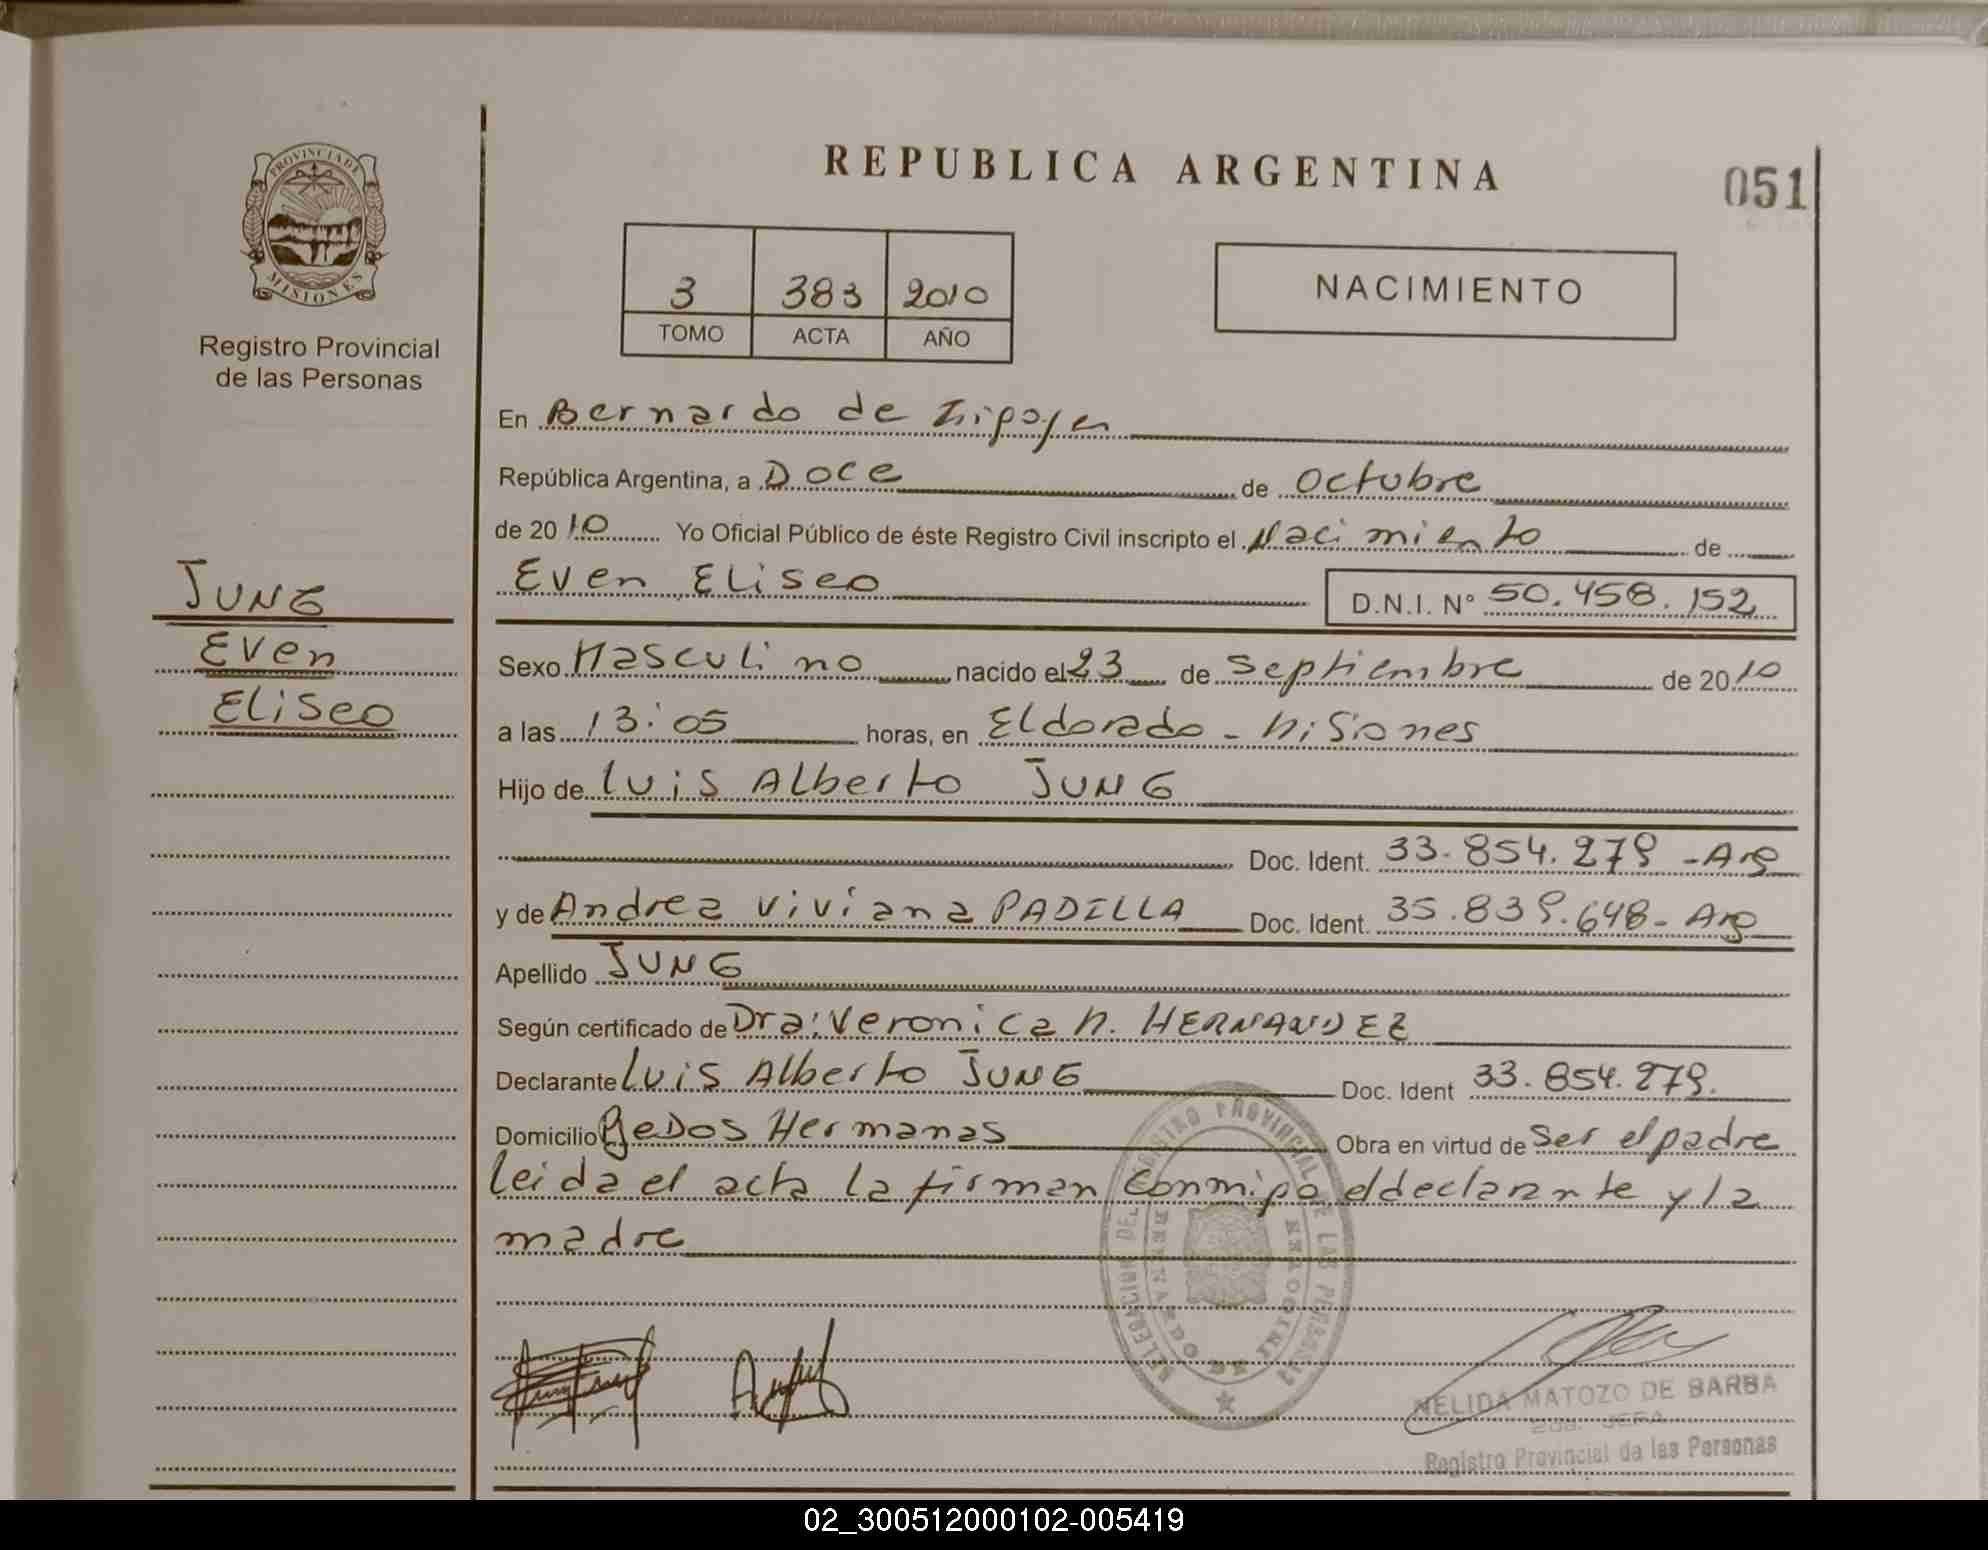 PROVINCIA DE
MISIONES
Registro Provincial
de las Personas
JUNG
Even
Eliseo
REPUBLICA ARGENTINA
051
3 383 2010
TOMO ACTA AÑO
NACIMIENTO
En Bernardo de Irigoyen
República Argentina, a Doce de Octubre
de 2010 Yo Oficial Público de éste Registro Civil inscripto el Nacimiento de
Even Eliseo D.N.I. N° 50.458.152
Sexo Masculino nacido el 23 de Septiembre de 2010
a las 13:05 horas, en Eldorado - Misiones
Hijo de Luis Alberto JUNG
Doc. Ident. 33.854.279 - Arg
y de Andrea Viviana PADILLA Doc. Ident. 35.839.648 - Arg
Apellido JUNG
Según certificado de Dra: Veronica M. HERNANDEZ
Declarante Luis Alberto JUNG Doc. Ident 33.854.279.
Domicilio Pje Dos Hermanas Obra en virtud de Ser el padre
Leida el acta la firman Conmigo el declarante y la
madre
DELEGACION DEL REGISTRO PROVINCIAL DE LAS PERSONAS
BERNARDO DE IRIGOYEN
NELIDA MATOZO DE BARBA
2da. JEFA
Registro Provincial de las Personas
02_300512000102-005419